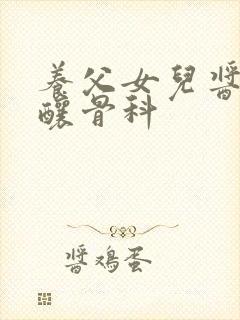 養父女兒醬
釀骨科
醬鸡蛋